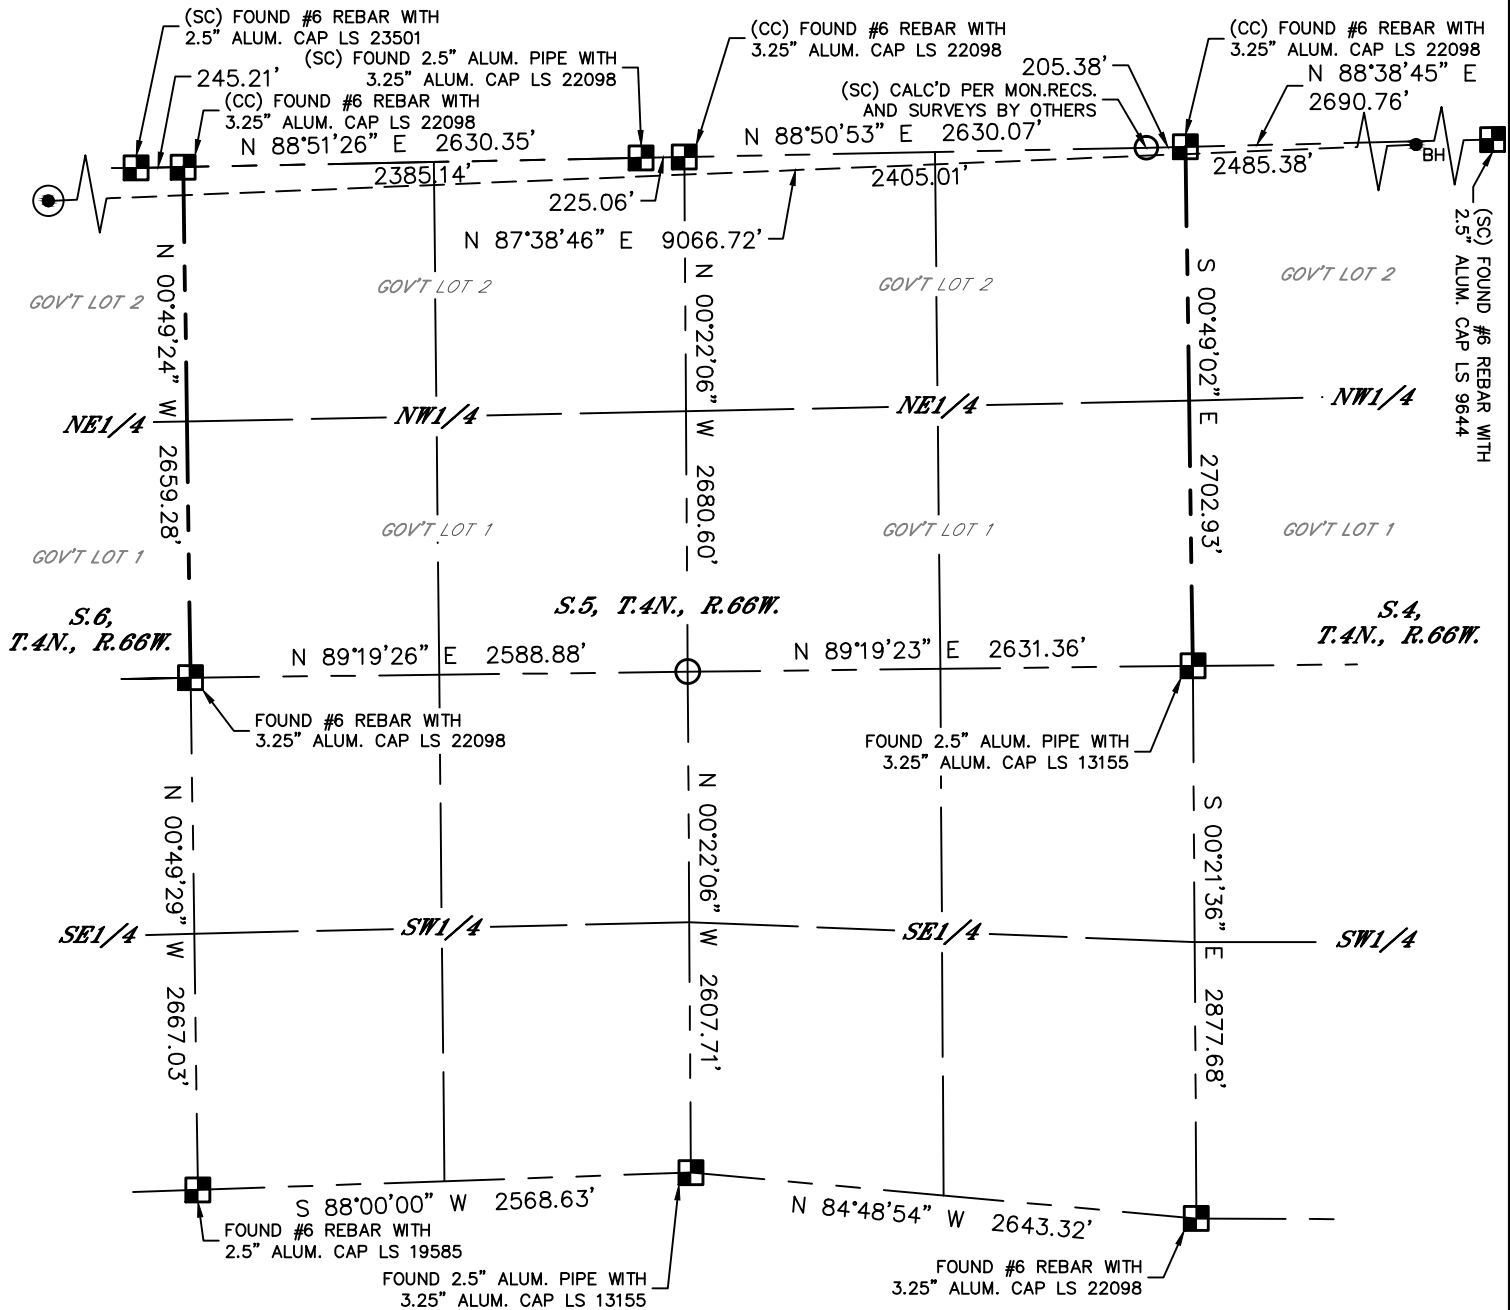 (SC) FOUND #6 REBAR WITH
2.5" ALUM. CAP LS 23501
(SC) FOUND 2.5" ALUM. PIPE WITH
3.25" ALUM. CAP LS 22098
245.21'
(CC) FOUND #6 REBAR WITH
3.25" ALUM. CAP LS 22098
(CC) FOUND #6 REBAR WITH
3.25" ALUM. CAP LS 22098
205.38'
(SC) CALC'D PER MON.RECS.
AND SURVEYS BY OTHERS
(CC) FOUND #6 REBAR WITH
3.25" ALUM. CAP LS 22098
N 88°38'45" E
2690.76'
N 88°51'26" E 2630.35'
N 88°50'53" E 2630.07'
2385.14'
2405.01'
2485.38'
BH
225.06'
N 87°38'46" E 9066.72'
(SC) FOUND #6 REBAR WITH
2.5" ALUM. CAP LS 9644
N 00°49'24" W 2659.28'
N 00°22'06" W 2680.60'
S 00°49'02" E 2702.93'
GOV'T LOT 2
GOV'T LOT 2
GOV'T LOT 2
GOV'T LOT 2
NE1/4
NW1/4
NE1/4
NW1/4
GOV'T LOT 1
GOV'T LOT 1
GOV'T LOT 1
GOV'T LOT 1
S.6,
T.4N., R.66W.
S.5, T.4N., R.66W.
S.4,
T.4N., R.66W.
N 89°19'26" E 2588.88'
N 89°19'23" E 2631.36'
FOUND #6 REBAR WITH
3.25" ALUM. CAP LS 22098
FOUND 2.5" ALUM. PIPE WITH
3.25" ALUM. CAP LS 13155
N 00°49'29" W 2667.03'
N 00°22'06" W 2607.71'
S 00°21'36" E 2877.68'
SE1/4
SW1/4
SE1/4
SW1/4
S 88°00'00" W 2568.63'
N 84°48'54" W 2643.32'
FOUND #6 REBAR WITH
2.5" ALUM. CAP LS 19585
FOUND 2.5" ALUM. PIPE WITH
3.25" ALUM. CAP LS 13155
FOUND #6 REBAR WITH
3.25" ALUM. CAP LS 22098